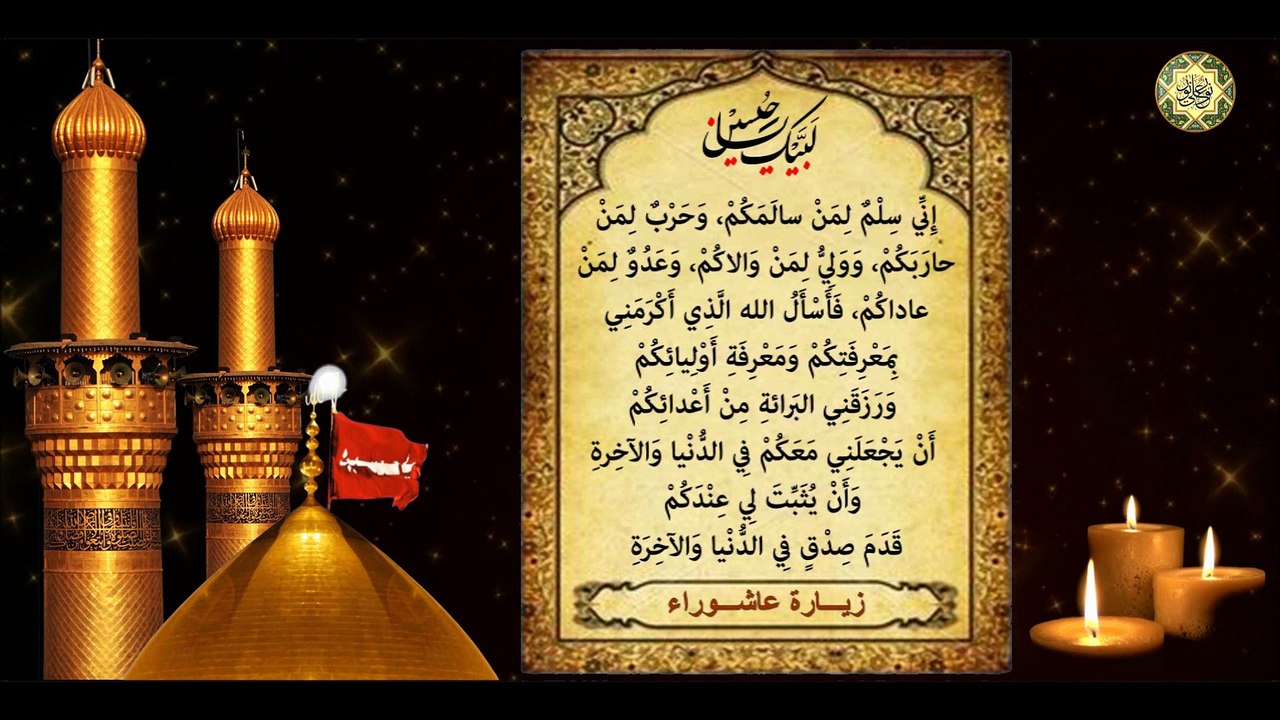 لَبَّيْكَ يا حُسَيْن
إِنِّي سِلْمٌ لِمَنْ سالَمَكُمْ، وَحَرْبٌ لِمَنْ
حارَبَكُمْ، وَوَلِيُّ لِمَنْ وَالاكُمْ، وَعَدُوٌ لِمَنْ
عاداكُمْ، فَأَسْأَلُ الله الَّذِي أَكْرَمَنِي
بِمَعْرِفَتِكُمْ وَمَعْرِفَةِ أَوْلِيائِكُمْ
وَرَزَقَنِي البَرائةِ مِنْ أَعْدائِكُمْ
أَنْ يَجْعَلَنِي مَعَكُمْ فِي الدُّنْيا وَالآخِرةِ
وَأَنْ يُثَبِّتَ لِي عِنْدَكُمْ
قَدَمَ صِدْقٍ فِي الدُّنْيا وَالآخِرَةِ
زيـارة عاشـوراء
نور على نور
يا حسين